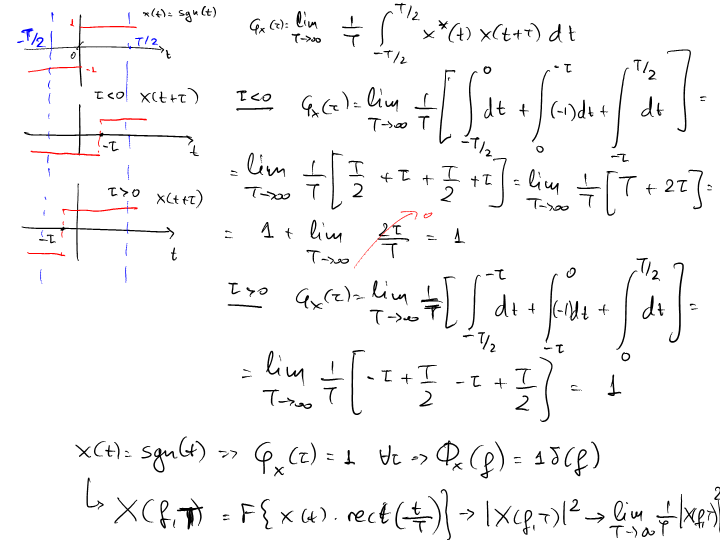 x(t) = sgn(t)
1
-T/2
0
T/2
t
-1
τ<0 x(t+τ)
-τ
t
τ>0 x(t+τ)
-τ
t
φₓ(τ) = lim_{T→∞} 1/T ∫_{-T/2}^{T/2} x*(t) x(t+τ) dt
τ<0 φₓ(τ) = lim_{T→∞} 1/T [ ∫_{-T/2}^{0} dt + ∫_{0}^{-τ} (-1)dt + ∫_{-τ}^{T/2} dt ] =
= lim_{T→∞} 1/T [ T/2 + τ + T/2 + τ ] = lim_{T→∞} 1/T [ T + 2τ ] =
= 1 + lim_{T→∞} 2τ/T → 0 = 1
τ>0 φₓ(τ) = lim_{T→∞} 1/T [ ∫_{-T/2}^{-τ} dt + ∫_{-τ}^{0} (-1)dt + ∫_{0}^{T/2} dt ] =
= lim_{T→∞} 1/T [ -τ + T/2 - τ + T/2 ] = 1
x(t) = sgn(t) => φₓ(τ) = 1 ∀τ => Φₓ(f) = 1 δ(f)
↳ X(f,T) = F{ x(t) · rect(t/T) } → |X(f,T)|² → lim_{T→∞} 1/T |X(f,T)|²